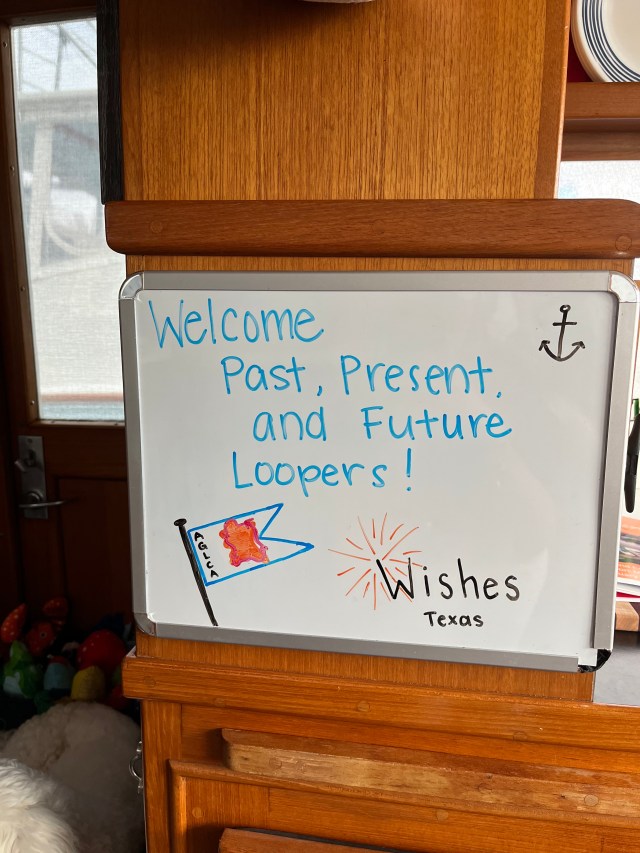 Welcome
Past, Present,
and Future
Loopers!
AGLCA
Wishes
Texas